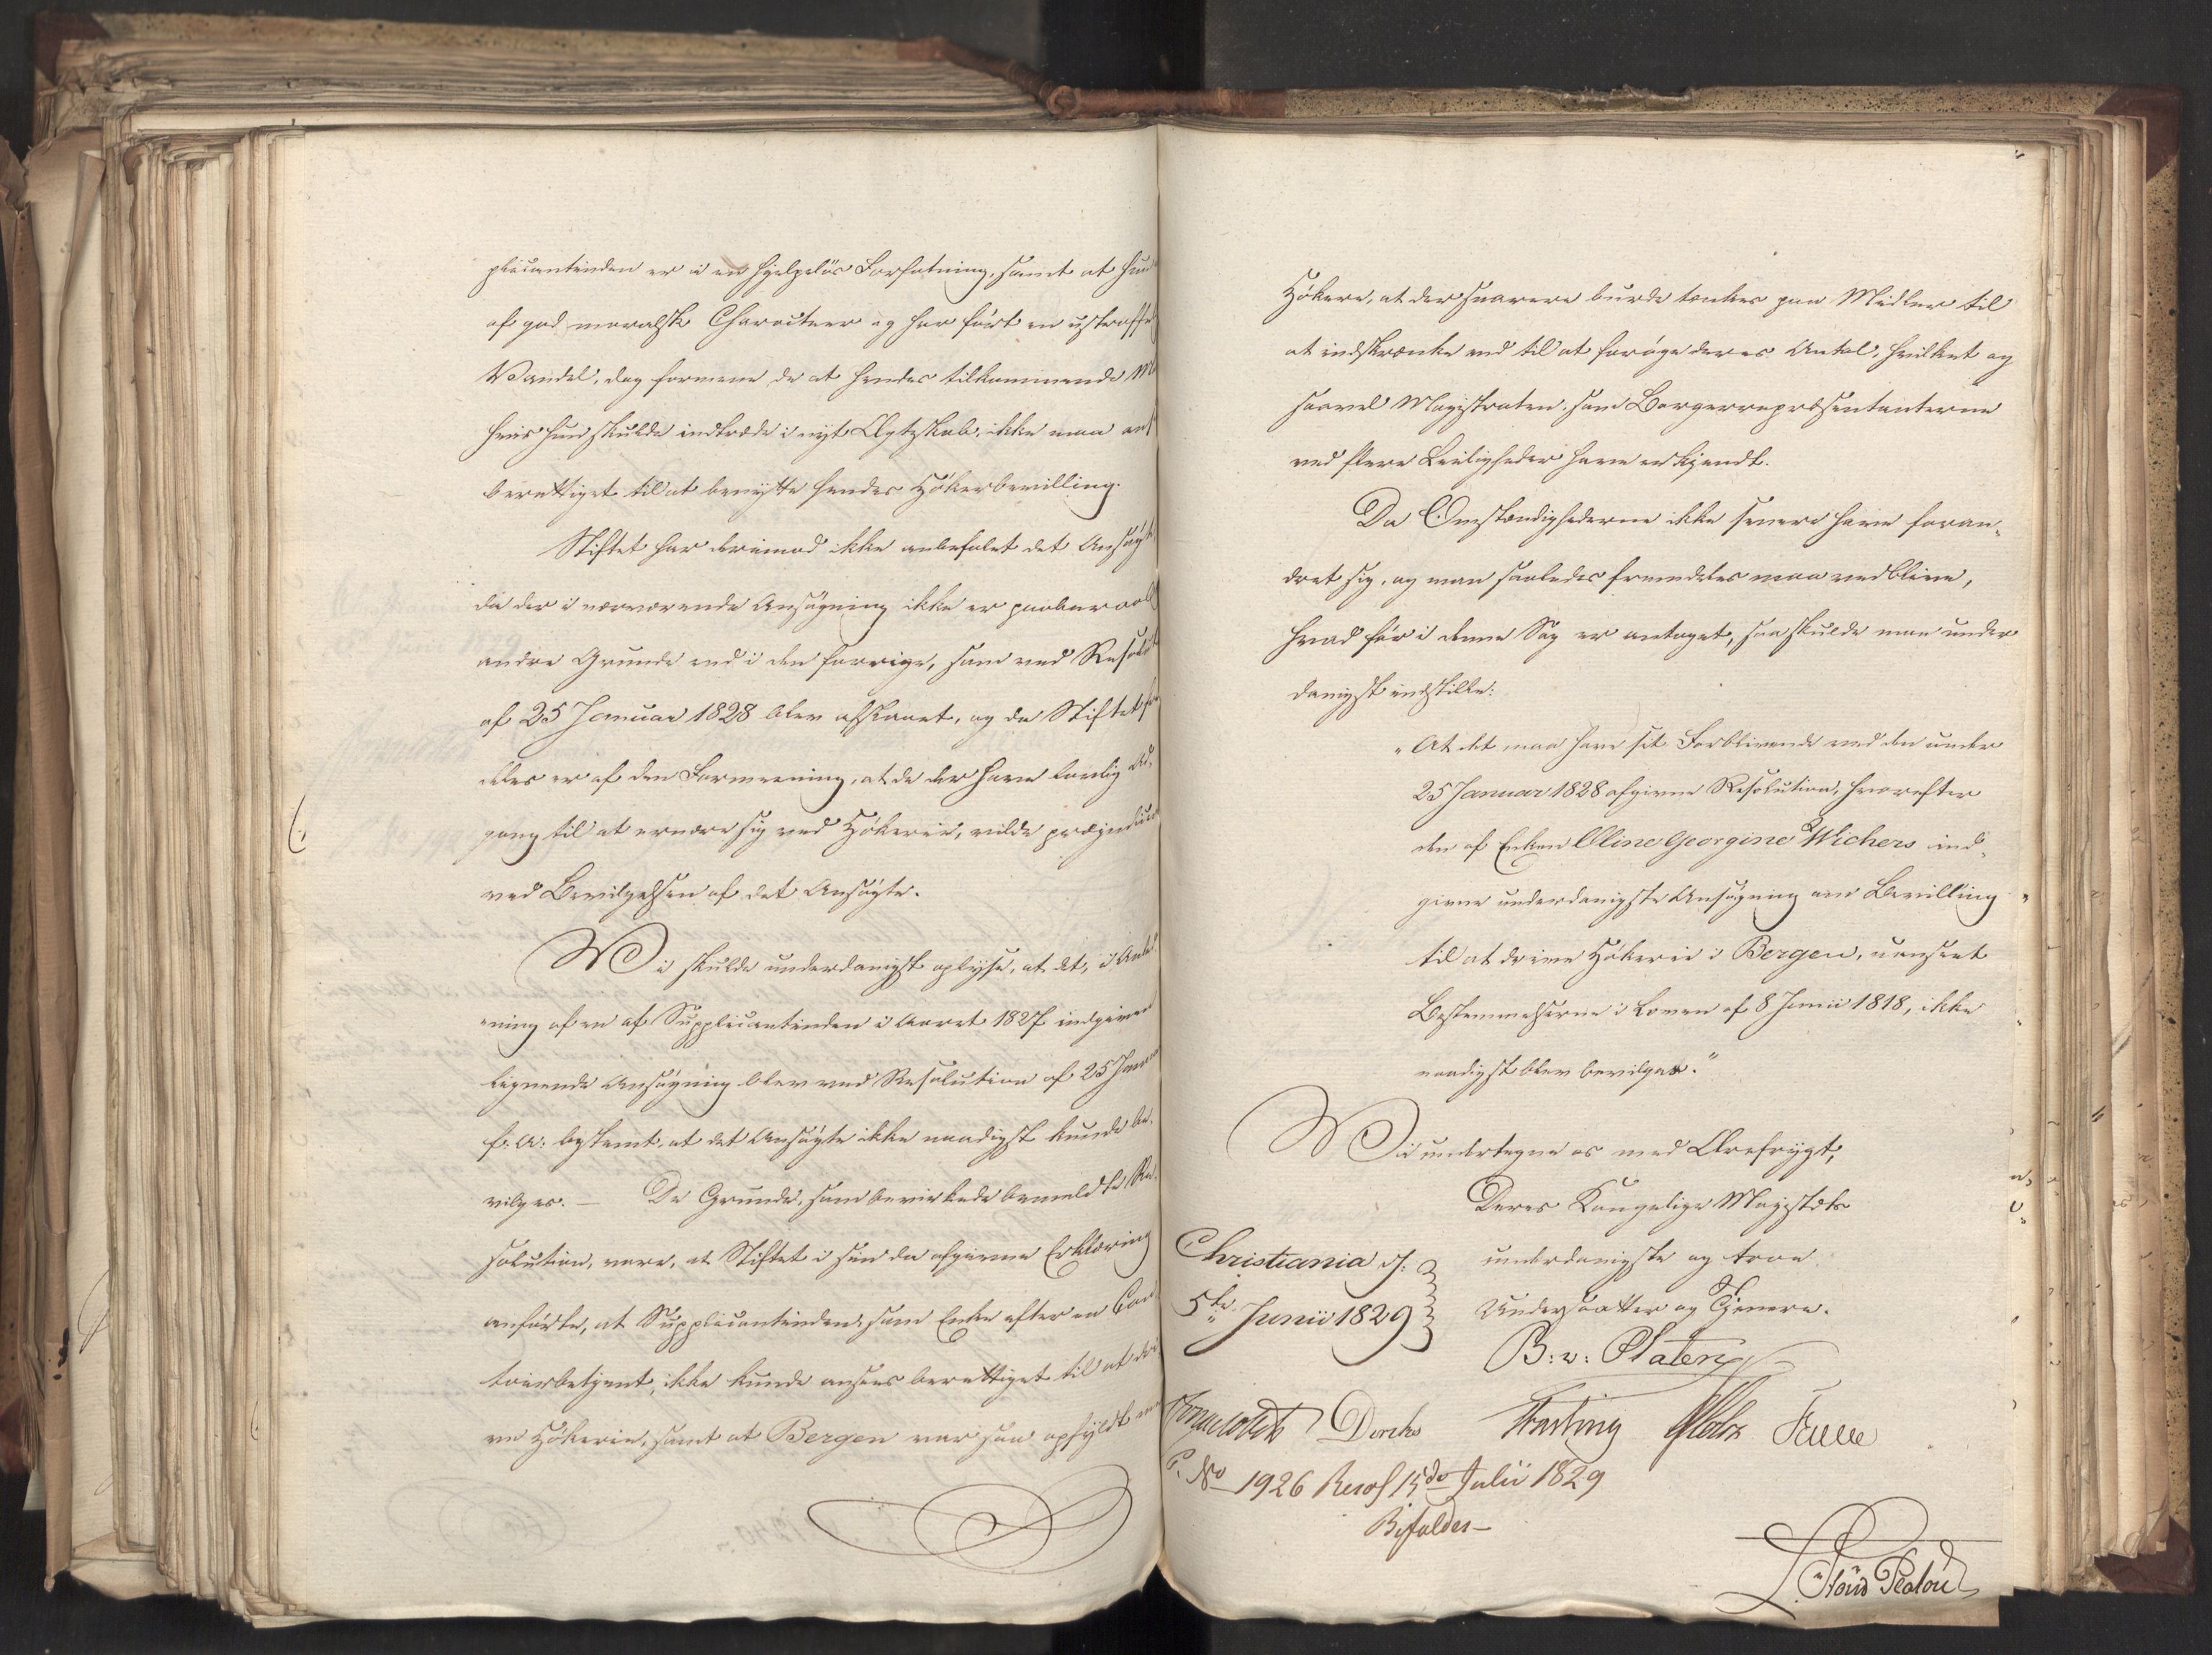 plicantinden er i en hjelpelös Forfatning, samt at hun
af god moralsk Characteer og har fört en ustraffe
Vandel, dog formene de at hendes tilkommende M
hvis hun skulde indtræde i nyt Ægteskab, ikke maa ans
berettiget til at benytte hendes Hökerbevilling.
Stiftet har derimod ikke anbefalet det Ansögte
da der i nærværende Ansögning ikke er paaberaabt
andre Grunde end i den forrige, som ved Resolut
af 25 Januar 1828 blev afslaaet, og da Stiftet frem
deles er af den Formeening, at de der have lovlig Ad-
gang til at ernære sig ved Hökerie, vilde præjudiceres
ved Bevilgelsen af det Ansögte.
Vi skulde underdanigst oplyse, at det, i Anled
ning af en af Supplicantinden i Aaret 1827 indgiven
lignende Ansögning blev ved Resolution af 25 Januar
f: A: bestemt, at det Ansögte ikke naadigst kunde be-
vilges. — De Grunde, som bevirkede bemeldte Re-
solution, vare, at Stiftet i sin da afgivne Erklæring
anförte, at Supplicantinden, som Enke efter en Con
toirbetjent, ikke kunde ansees berettiget til at dri
ve Hökerie, samt at Bergen var saa opfyldt med
Hökere, at der snarere burde tænkes paa Midler til
at indskrænke end til at foröge deres Antal, hvilket og
saavel Magistraten, som Borgerrepræsentanterne
ved flere Leiligheder have erkjendt.
Da Omstændighederne ikke senere have foran-
dret sig, og man saaledes fremdeles maa vedblive,
hvad för i denne Sag er antaget, saa skulde man under
danigst indstille:
"At det maa have sit Forblivende ved den under
25 Januar 1828 afgivne Resolution, hvorefter
den af Enken Oline Georgine Wichers ind-
givne underdanigste Ansögning om Bevilling
til at drive Hökerie i Bergen, uanseet
Bestemmelserne i Loven af 8 Junii 1818, ikke
naadigst blev bevilget."
Vi undertegne os med Ærefrygt,
Deres Kongelige Majestæts
Christiania d: underdanigste og troe
5te Junii 1829 Undersaatter og Tjenere.
B: v: Platen
Diriks Fasting
P. No 1926 Resol 15de Julii 1829
Bifaldes—